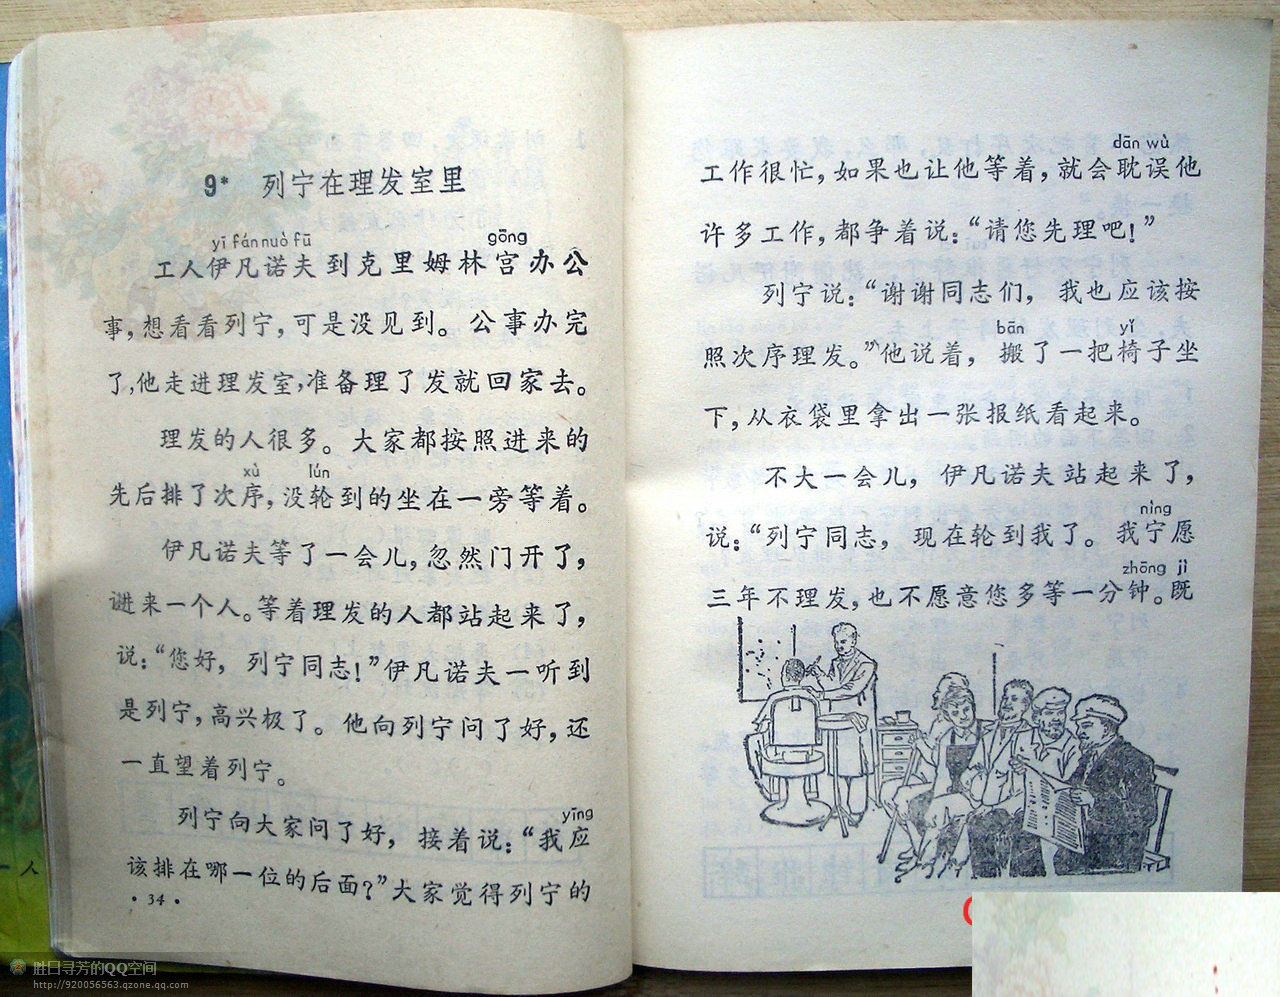 9* 列宁在理发室里
yī fán nuò fū gōng
工人伊凡诺夫到克里姆林宫办公
事，想看看列宁，可是没见到。公事办完
了，他走进理发室，准备理了发就回家去。
理发的人很多。大家都按照进来的
xù lún
先后排了次序，没轮到的坐在一旁等着。
伊凡诺夫等了一会儿，忽然门开了，
进来一个人。等着理发的人都站起来了，
说：“您好，列宁同志！”伊凡诺夫一听到
是列宁，高兴极了。他向列宁问了好，还
一直望着列宁。
yīng
列宁向大家问了好，接着说：“我应
该排在哪一位的后面？”大家觉得列宁的
·34·
dān wù
工作很忙，如果也让他等着，就会耽误他
许多工作，都争着说：“请您先理吧！”
列宁说：“谢谢同志们，我也应该按
bān yǐ
照次序理发。”他说着，搬了一把椅子坐
下，从衣袋里拿出一张报纸看起来。
不大一会儿，伊凡诺夫站起来了，
nìng
说：“列宁同志，现在轮到我了。我宁愿
zhōng jì
三年不理发，也不愿意您多等一分钟。既
人
胜日寻芳的QQ空间
http://920056563.qzone.qq.com